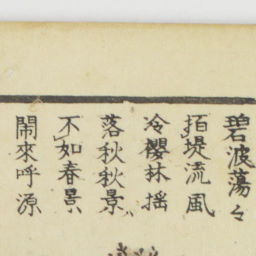 碧波蕩々
拍堤流風
冷櫻林揺
落秋秋景
不如春景
閙來呼源